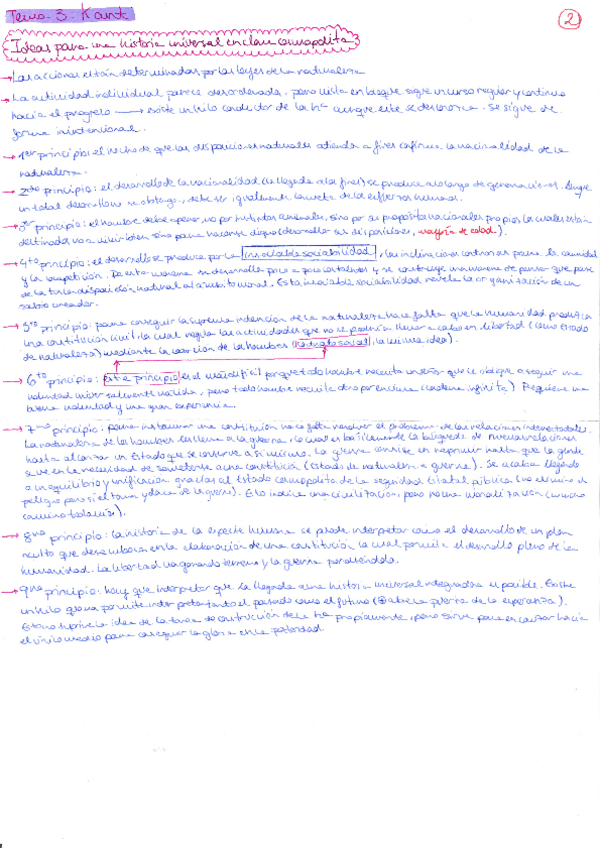 Tema 3: Kant
2
Ideas para una historia universal en clave cosmopolita
→ Las acciones están determinadas por las leyes de la naturaleza
→ La actividad individual parece desordenada, pero vista en bloque sigue un curso regular y continuo
hacia el progreso → existe un hilo conductor de la hª aunque este se desconozca. Se sigue de
forma inintencional.
→ 1er principio: el hecho de que las disposiciones naturales atiendan a fines confirma la racionalidad de la
naturaleza.
→ 2do principio: el desarrollo de la racionalidad (la llegada a los fines) se produce a lo largo de generaciones. Aunque
un total desarrollo, debe ser igualmente la meta de los esfuerzos humanos.
→ 3er principio: el hombre debe operar no por instintos animales, sino por su propósito racional propio, las cuales están
destinadas no a vivir bien sino para hacerse digno (desarrollar sus disposiciones, mayoría de edad).
→ 4to principio: el desarrollo se produce por la insociable sociabilidad, las inclinaciones contrarias para la comunidad
y la competición. De esta manera se desarrollan poco a poco los talentos y se construye una manera de pensar que pase
de la tosca disposición natural al ámbito moral. Esta insociable sociabilidad revela la organización de un
sabio creador.
→ 5to principio: para conseguir la suprema intención de la naturaleza hace falta que la humanidad produzca
una constitución civil, la cual regla las actividades que no se podrían llevar a cabo en libertad (como estado
de naturaleza) mediante la coacción de los hombres (contrato social, la misma idea).
→ 6to principio: este principio es el más difícil porque todo hombre necesita un señor que le obligue a seguir una
voluntad universalmente válida, pero todo hombre necesita otro por encima (cadena infinita). Requiere una
buena voluntad y una gran experiencia.
→ 7mo principio: para instaurar una constitución hace falta resolver el problema de las relaciones interestatales.
La naturaleza de los hombres les lleva a la guerra, lo cual es básicamente la búsqueda de nuevas relaciones
hasta alcanzar un Estado que se conserve a sí mismo. La guerra consiste en reprimir hasta que la gente
se ve en la necesidad de someterse a una constitución (Estado de naturaleza = guerra). Se acaba llegando
a un equilibrio y unificación gracias al Estado cosmopolita de la seguridad estatal pública (no elimina el
peligro). Esto indica una civilización, pero no una moralización (mucho
camino todavía).
→ 8vo principio: la historia de la especie humana se puede interpretar como el desarrollo de un plan
oculto que desemboca en la elaboración de una constitución la cual permite el desarrollo pleno de la
humanidad. La libertad va ganando terreno y la guerra perdiéndolo.
→ 9no principio: hay que interpretar que la llegada a una historia universal integradora es posible. Existe
un hilo que permite interpretar tanto el pasado como el futuro (abre la puerta de la esperanza).
Esto no suprime la idea de la tarea de construcción de la hª propiamente, pero sirve para encauzar hacia
el único medio para conseguir la gloria en la posteridad